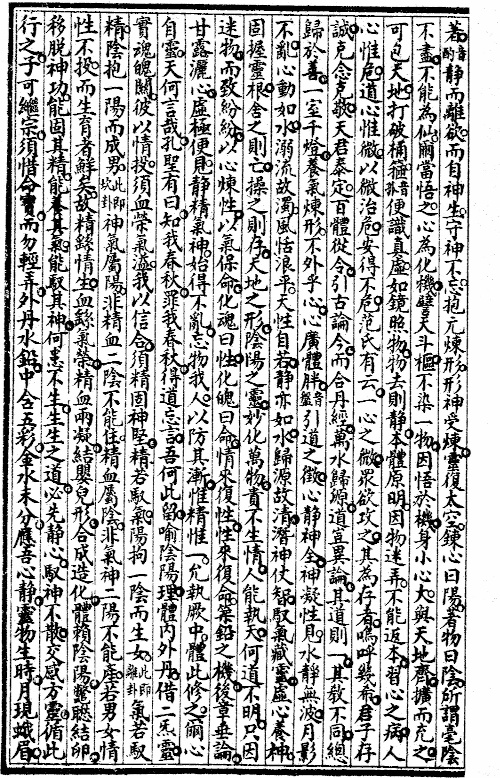 若音酌静而離欲而自神生守神不忘抱元煉形形神受煉靈復太空錬心曰陽着物曰陰所謂毫陰
不盡不能為仙爾當悟之心為化機譬天斗樞不染一物因悟於機身小心大與天地齊擴而充之
可包天地打破桶箍音孤便識真虛如鏡照物物去則静本體原明因物迷弄不能返本習心之病人
心惟危道心惟微以微治危安得不危范氏有云一心之微眾欲攻之其為存者嗚呼幾希君子存
誠克念克敬天君泰定百體從令引古論今而合丹經萬水歸源道豈異論其道則一其教不同總
歸於善一室千燈養氣煉形不外乎心心廣體胖音盤引道之徵心静神全神凝性見水静無波月影
不亂心動如水溺流故濁風恬浪平天性自若静亦如水歸源故清瀦神仗智馭氣藏靈虛心養神
固握靈根舍之則亡操之則存天地之形陰陽之靈妙化萬物貴不生情人能執天何道不明只因
迷物而致紛紛以心煉性以氣保命化魂曰性化魄曰命情來復性性來復命築鉛之機後章垂論
甘露灑心虛極便見静精氣神始得不亂忘物我人以防其漸惟精惟一允執厥中體此修之爾心
自靈天何言哉孔聖有曰知我春秋罪我春秋得道忘言吾何此留喻陰陽理體內外丹借二炁靈
實魂魄關彼以情投須血榮氣溢我以信合須精固神堅精若馭氣陽拘一陰而生女此即離卦氣若馭
精陰抱一陽而成男此即坎卦神氣屬陽非精血二陰不能住精血屬陰非氣神二陽不能產若男女情
性不投而生育者鮮矣故精錄情生血繇氣榮精血兩凝結嬰兒形合成造化體賴陰陽靈聽結卵
移脱神功能固其精能養其氣能馭其神何患不生生生之道必先静心馭神不散交感方靈循此
行之子可繼宗須惜命寶而勿輕弄外丹水鉛中含五彩金水未分應吾心静靈物生時月現蛾眉